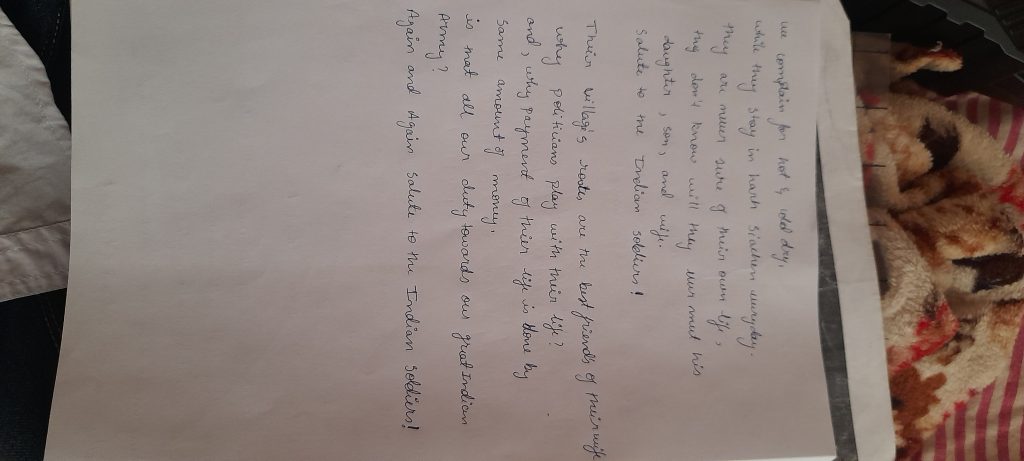 we complain for hot & cold day,
while they stay in harsh Siachen everyday.
they are never sure of their own life,
they don't know will they ever meet his
daughter, son, and wife.
Salute to the Indian soldiers!
Thier village's routes are the best friends of their wife
why politicians play with their life?
and, why payment of thier life is done by
same amount of money.
is that all our duty towards our great Indian
Army?
Again and Again salute to the Indian soldiers!